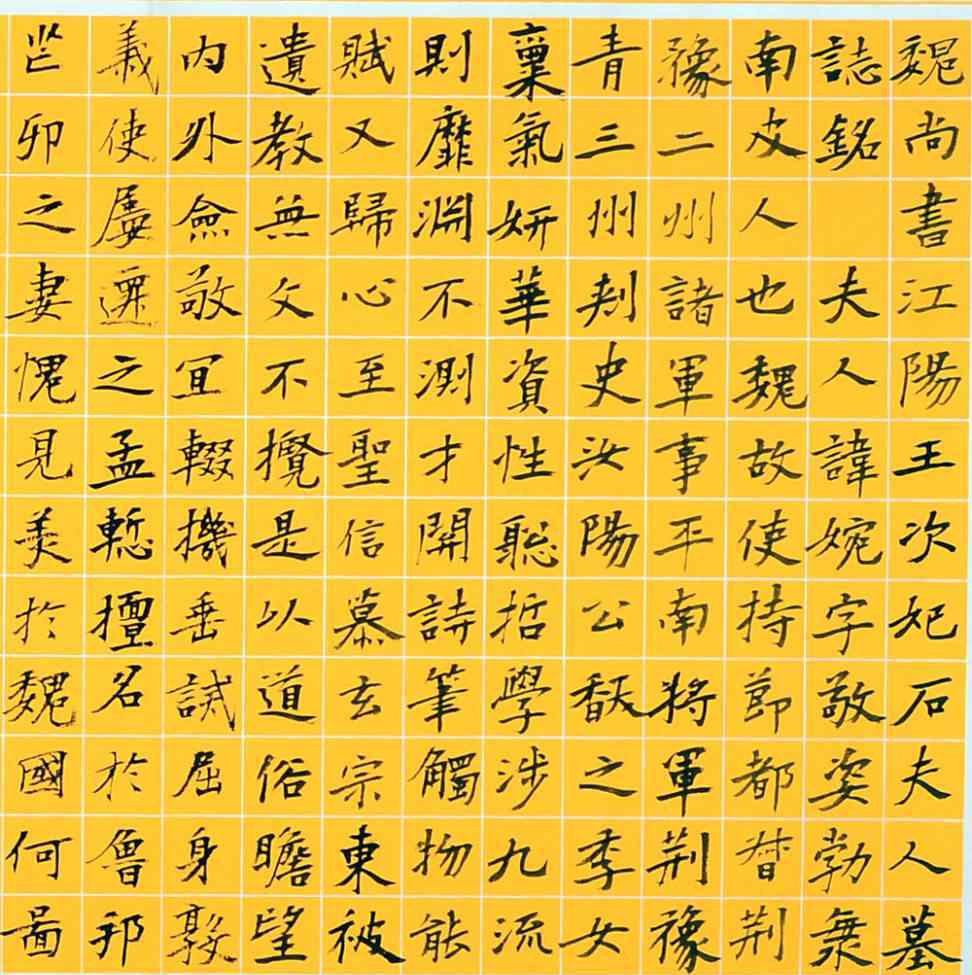 魏尚書江陽王次妃石夫人墓
誌銘 夫人諱婉字敬姿勃海
南皮人也魏故使持節都督荊
豫二州諸軍事平南將軍荊豫
青三州刾史汝陽公馛之季女
稟氣妍華資性聡哲學涉九流
則靡淵不測才開詩筆觸物能
賦又歸心至聖信慕玄宗東被
遺教無文不攬是以道俗瞻望
内外僉敬冝輟機垂試屈身敦
義使屢遷之孟慙擅名於魯邦
芒卯之妻愧見美於魏國何啚